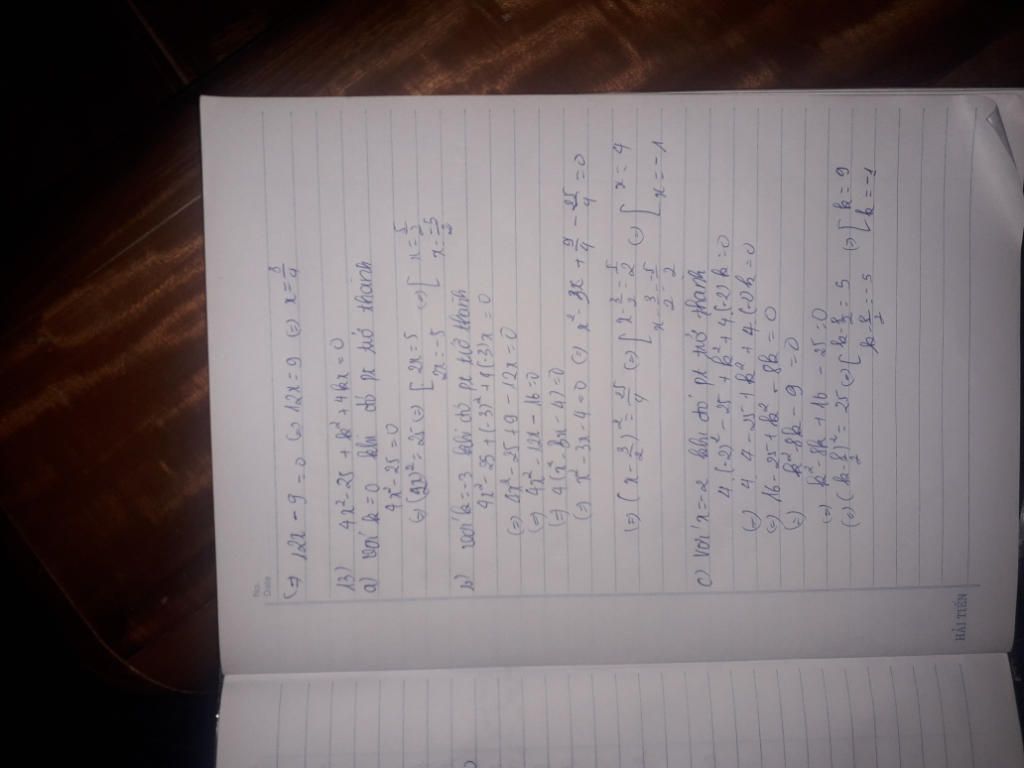 No.
Date
(=) 12x - 9 = 0 (=) 12x = 9 (=) x = 3/4
13) 4x² - 25 + k² + 4kx = 0
a) với k = 0 khi đó pt trở thành
4x² - 25 = 0
(=) (2x)² = 25 (=) [ 2x = 5 (=) [ x = 5/2
2x = -5 x = -5/2
b) với k = -3 khi đó pt trở thành
4x² - 25 + (-3)² + 4(-3)x = 0
(=) 4x² - 25 + 9 - 12x = 0
(=) 4x² - 12x - 16 = 0
(=) 4(x² - 3x - 4) = 0
(=) x² - 3x - 4 = 0 (=) x² - 3x + 9/4 - 25/4 = 0
(=) (x - 3/2)² = 25/4 (=) [ x - 3/2 = 5/2 (=) [ x = 4
x - 3/2 = -5/2 x = -1
c) Với x = -2 khi đó pt trở thành
4.(-2)² - 25 + k² + 4.(-2)k = 0
(=) 4.4 - 25 + k² + 4.(-2)k = 0
(=) 16 - 25 + k² - 8k = 0
(=) k² - 8k - 9 = 0
(=) k² - 8k + 16 - 25 = 0
(=) (k - 8/2)² = 25 (=) [ k - 8/2 = 5 (=) [ k = 9
k - 8/2 = -5 k = -1
HẢI TIẾN